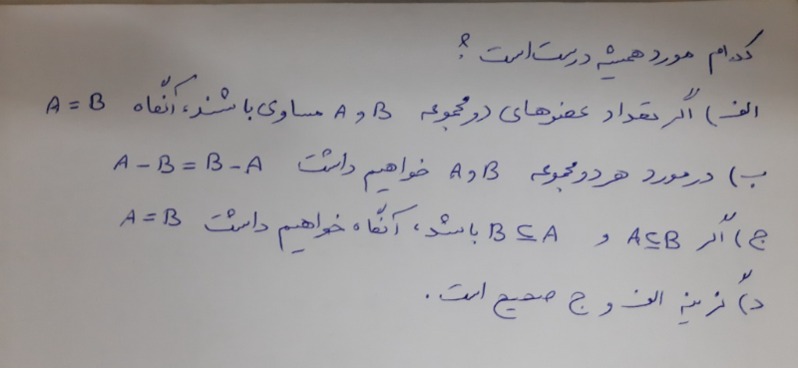 کدام مورد همیشه درست است؟
الف) اگر تعداد عضوهای دو مجموعه A و B مساوی باشند، آنگاه A = B
ب) در مورد هر دو مجموعه A و B خواهیم داشت A - B = B - A
ج) اگر A ⊆ B و B ⊆ A باشد، آنگاه خواهیم داشت A = B
د) گزینه الف و ج صحیح است.